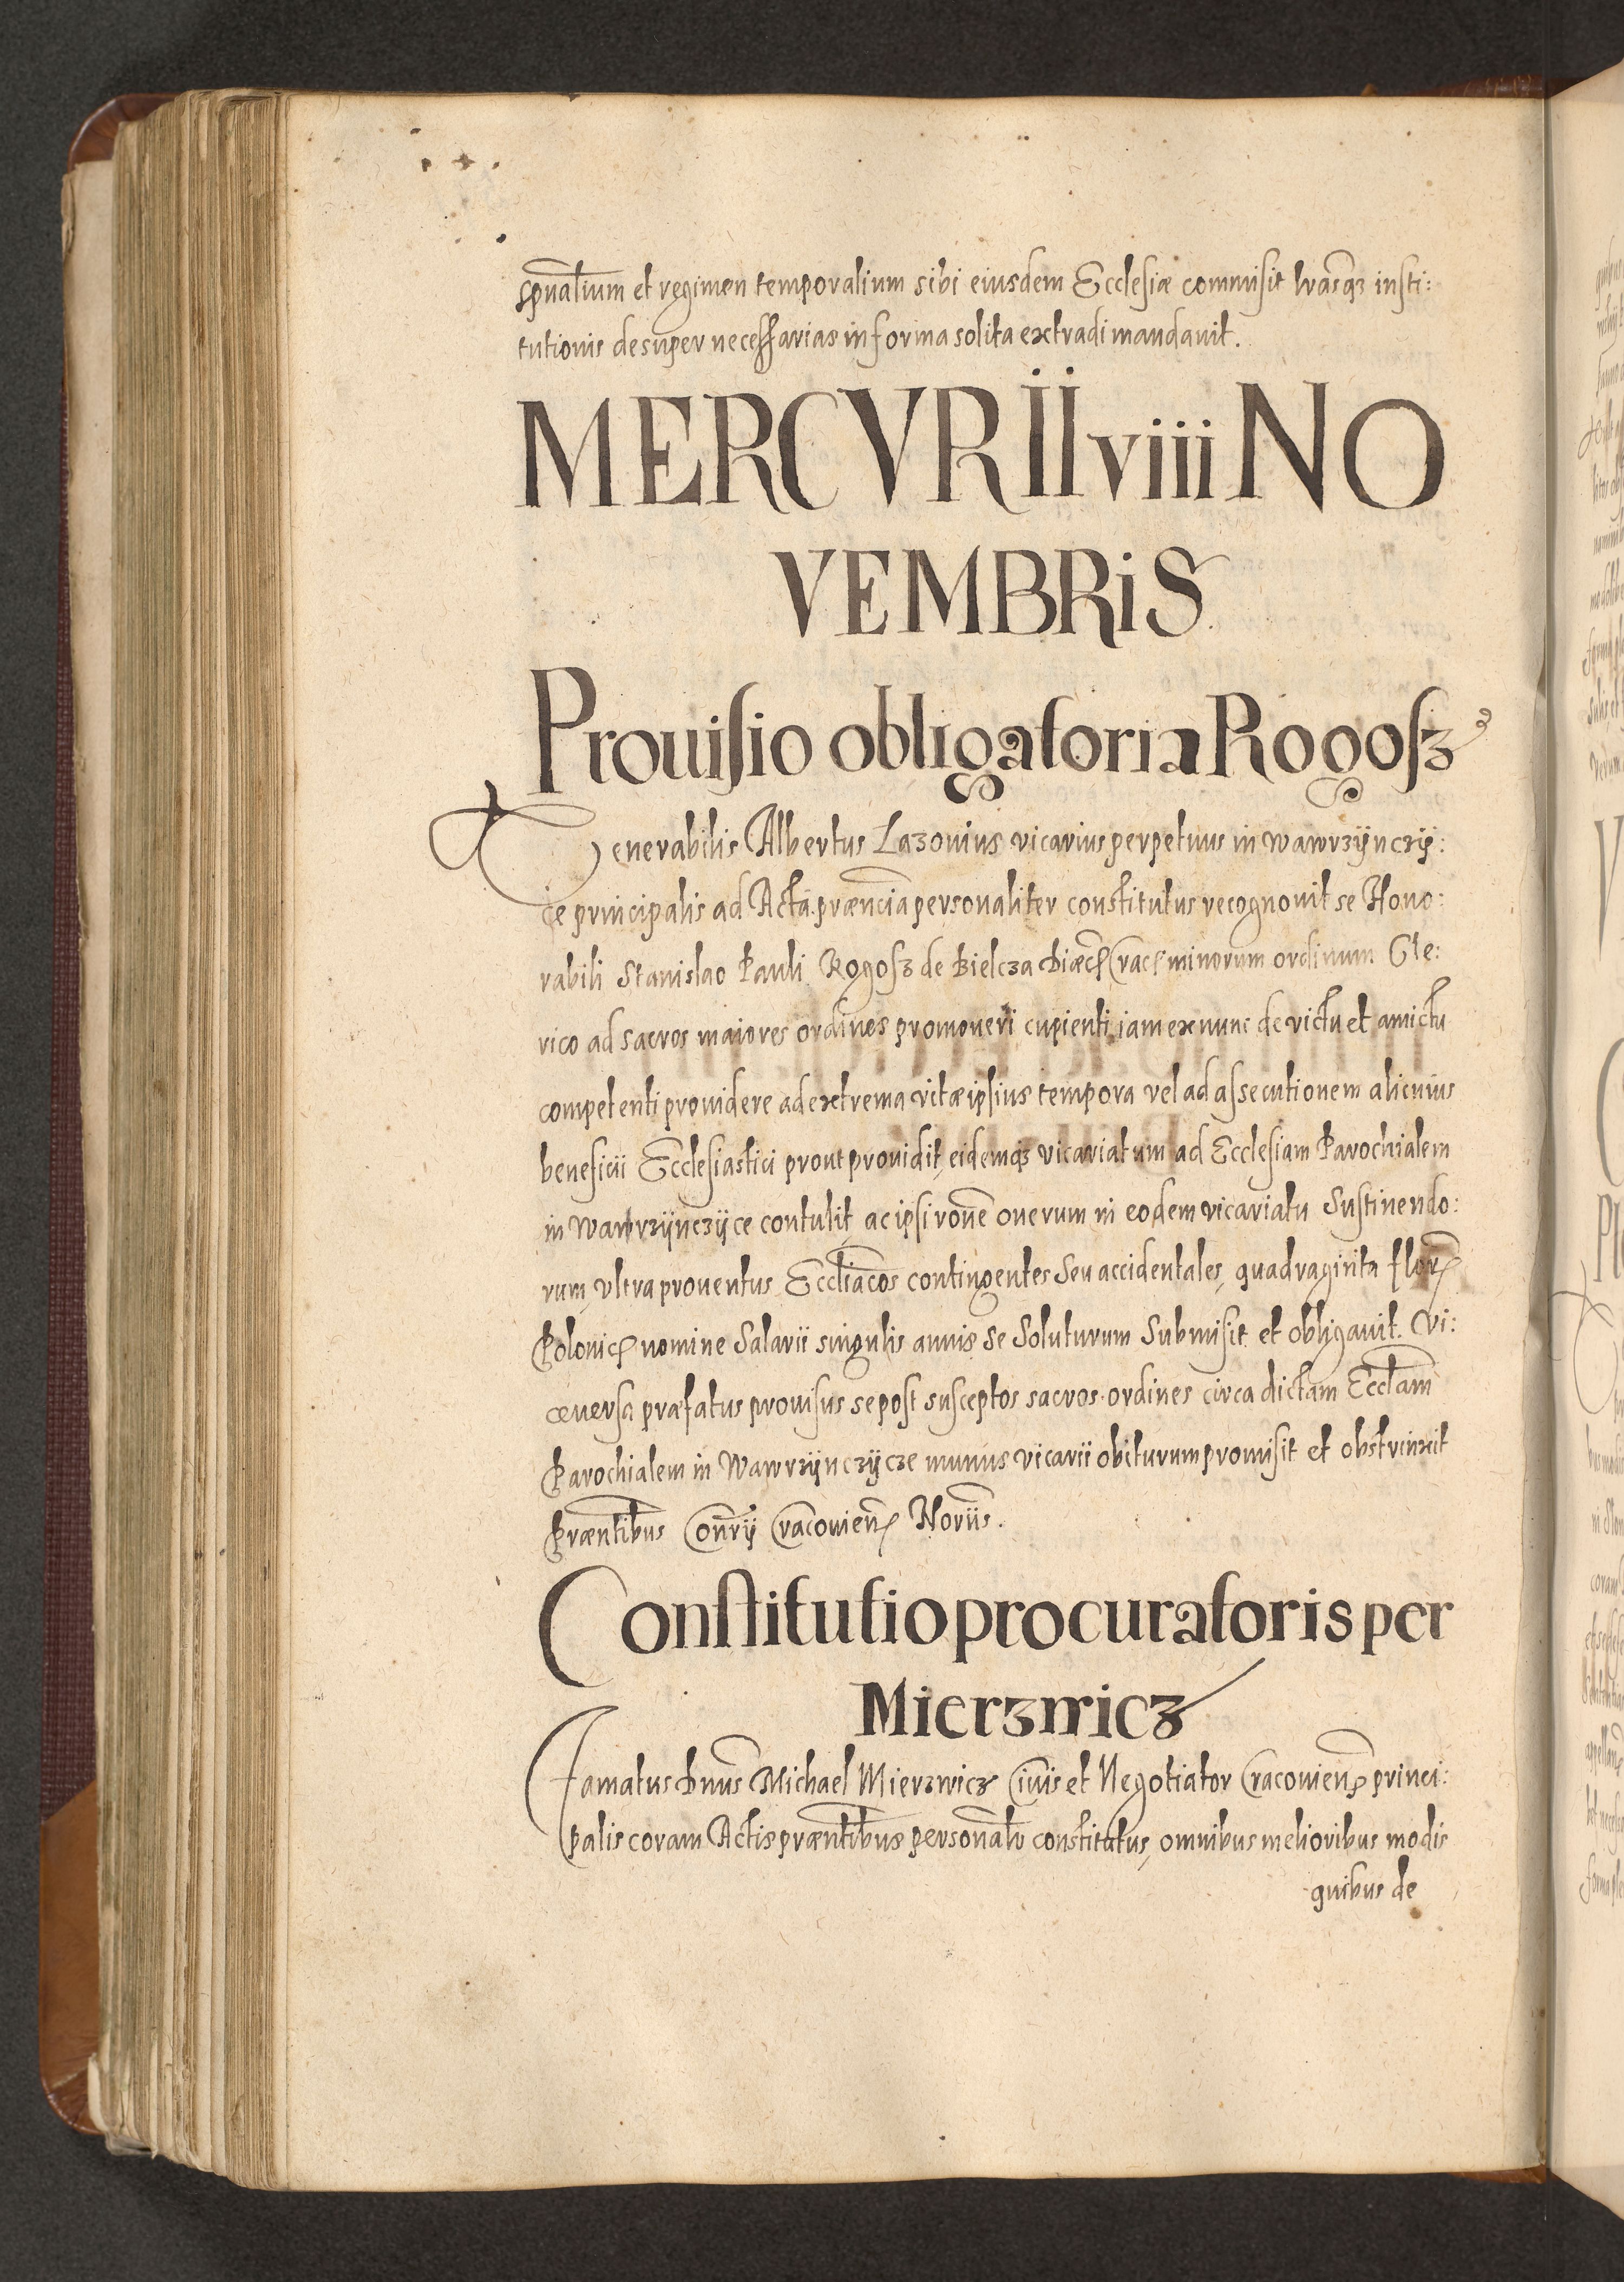 spũalium et regimen temporalium sibi eiusdem Ecclesiæ commisit lrãsq3 insti:
tutionis desuper necessarias in forma solita extradi mandavit.
MERCVRII viii NO
VEMBRiS
Prouisio obligatoria Rogosz
Venerabilis Albertus Lazonius vicarius perpetuus in wawrzijnczij:
ce principalis ad Acta præncia personaliter constitutus recognouit se Hono:
rabili Stanislao Pauli Rogosz de Bielcza Diæc Crac minorum ordinum Cle:
rico ad sacros maiores ordines promoueri cupienti iam ex nunc de victu et amictu
competenti prouidere ad extrema vitæ ipsius tempora vel ad assecutionem alicuius
beneficii Ecclesiastici prout prouidit, eidemq3 vicariatum ad Ecclesiam Parochialem
in Wawrzijnczijce contulit, ac ipsi rõne onerum in eodem vicariatu Sustinendo:
rum, vltra prouentus Eccliãcos contingentes Seu accidentales, quadraginta flor
Polonic nomine Salarii singulis annis se Soluturum Submisit et obligauit. Vi:
ceuersa præfatus prouisus se post susceptos sacros ordines circa dictam Ecclãm
Parochialem in Wawrzijnczijcze munus vicarii obiturum promisit et obstrinxit
Præntibus Conrij Cracouien Noriis.
Constitutio procuratoris per
Mierzwicz
Famatus Dnus Michael Mierzwicz Ciuis et Negotiator Cracouien princi:
palis coram Actis præntibus personalr constitutus, omnibus melioribus modis
quibus de